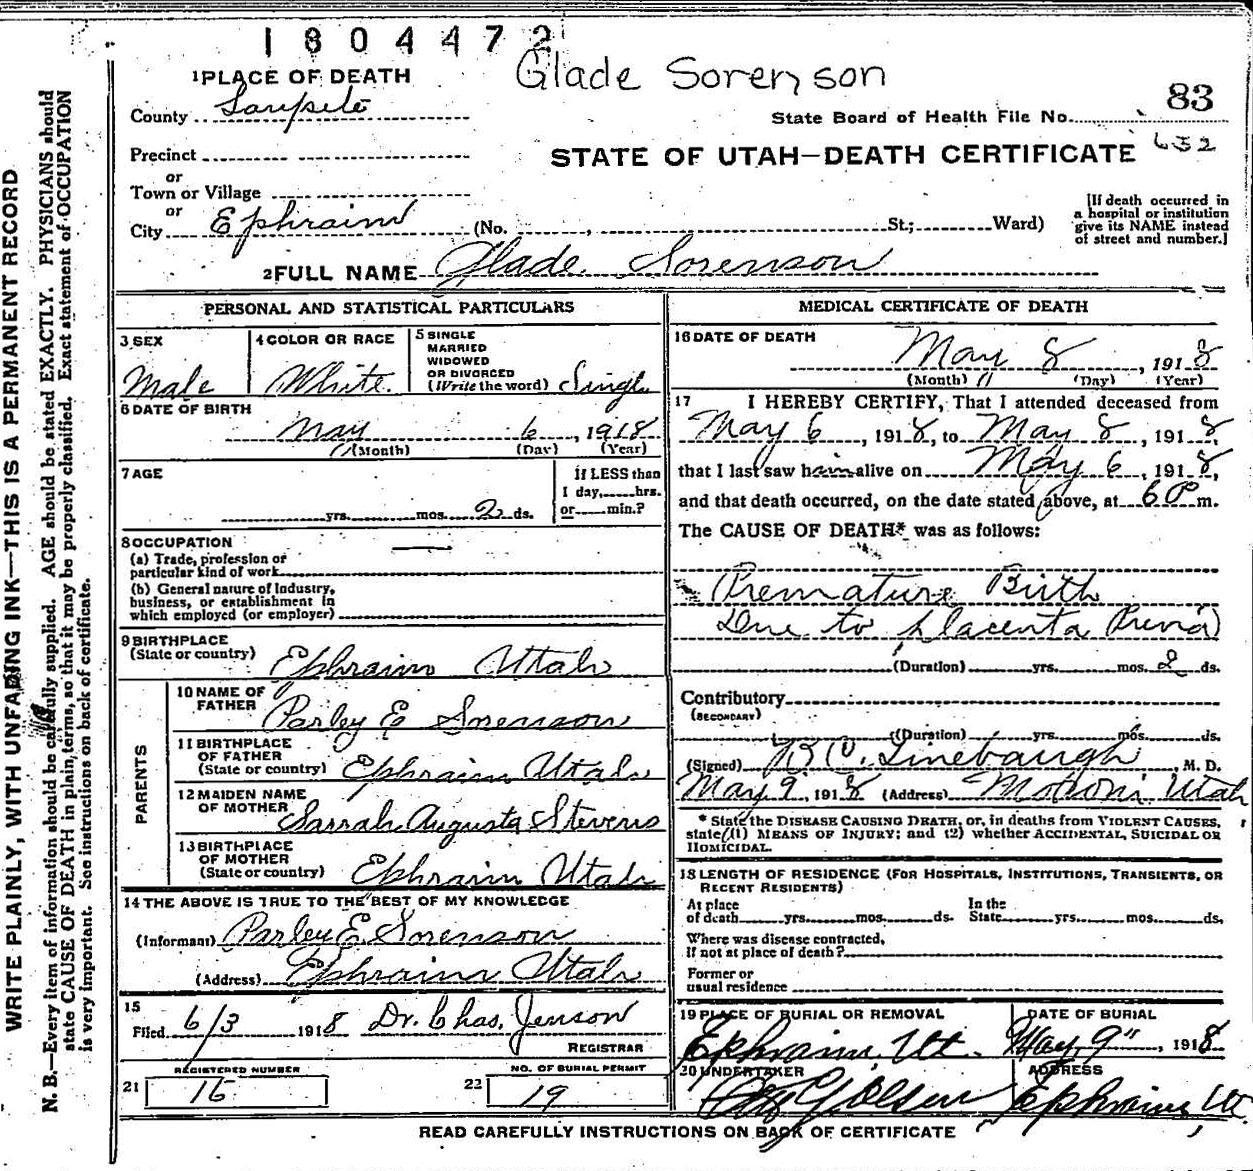 1804472
Glade Sorenson
1 PLACE OF DEATH
County Sanpete
83
State Board of Health File No.
632
Precinct
STATE OF UTAH—DEATH CERTIFICATE
or
Town or Village
or
City Ephraim (No. , St.; Ward)
[If death occurred in
a hospital or institution
give its NAME instead
of street and number.]
2 FULL NAME Glade Sorenson
PERSONAL AND STATISTICAL PARTICULARS
3 SEX
Male
4 COLOR OR RACE
White
5 SINGLE
MARRIED
WIDOWED
OR DIVORCED
(Write the word) Single
6 DATE OF BIRTH
May 6, 1918
(Month) (Day) (Year)
7 AGE
yrs. mos. 2 ds.
If LESS than
1 day, hrs.
or min.?
8 OCCUPATION
(a) Trade, profession or
particular kind of work
(b) General nature of industry,
business, or establishment in
which employed (or employer)
9 BIRTHPLACE
(State or country) Ephraim Utah
PARENTS
10 NAME OF
FATHER Parley E Sorenson
11 BIRTHPLACE
OF FATHER
(State or country) Ephraim Utah
12 MAIDEN NAME
OF MOTHER Sarrah Augusta Stevens
13 BIRTHPLACE
OF MOTHER
(State or country) Ephraim Utah
14 THE ABOVE IS TRUE TO THE BEST OF MY KNOWLEDGE
(Informant) Parley E. Sorenson
(Address) Ephraim Utah
15
Filed 6/3 1918 Dr. Chas. Jenson
REGISTRAR
REGISTERED NUMBER
21 16
NO. OF BURIAL PERMIT
22 19
MEDICAL CERTIFICATE OF DEATH
16 DATE OF DEATH
May 8, 1918
(Month) (Day) (Year)
17 I HEREBY CERTIFY, That I attended deceased from
May 6, 1918, to May 8, 1918,
that I last saw him alive on May 6, 1918,
and that death occurred, on the date stated above, at 6 P m.
The CAUSE OF DEATH* was as follows:
Premature Birth
Due to placenta Previa
(Duration) yrs. mos. 2 ds.
Contributory
(SECONDARY)
(Duration) yrs. mos. ds.
(Signed) R C. Linebaugh, M. D.
May 9, 1918 (Address) Moroni Utah
* State the DISEASE CAUSING DEATH, or, in deaths from VIOLENT CAUSES,
state (1) MEANS OF INJURY; and (2) whether ACCIDENTAL, SUICIDAL OR
HOMICIDAL.
18 LENGTH OF RESIDENCE (FOR HOSPITALS, INSTITUTIONS, TRANSIENTS, OR
RECENT RESIDENTS)
At place
of death yrs. mos. ds.
In the
State yrs. mos. ds.
Where was disease contracted,
if not at place of death?
Former or
usual residence
19 PLACE OF BURIAL OR REMOVAL
Ephraim, Ut.
DATE OF BURIAL
May, 9", 1918
20 UNDERTAKER
Olsen
ADDRESS
Ephraim, Ut.
READ CAREFULLY INSTRUCTIONS ON BACK OF CERTIFICATE
WRITE PLAINLY, WITH UNFADING INK—THIS IS A PERMANENT RECORD
N. B.—Every item of information should be carefully supplied. AGE should be stated EXACTLY. PHYSICIANS should
state CAUSE OF DEATH in plain terms, so that it may be properly classified. Exact statement of OCCUPATION
is very important. See instructions on back of certificate.